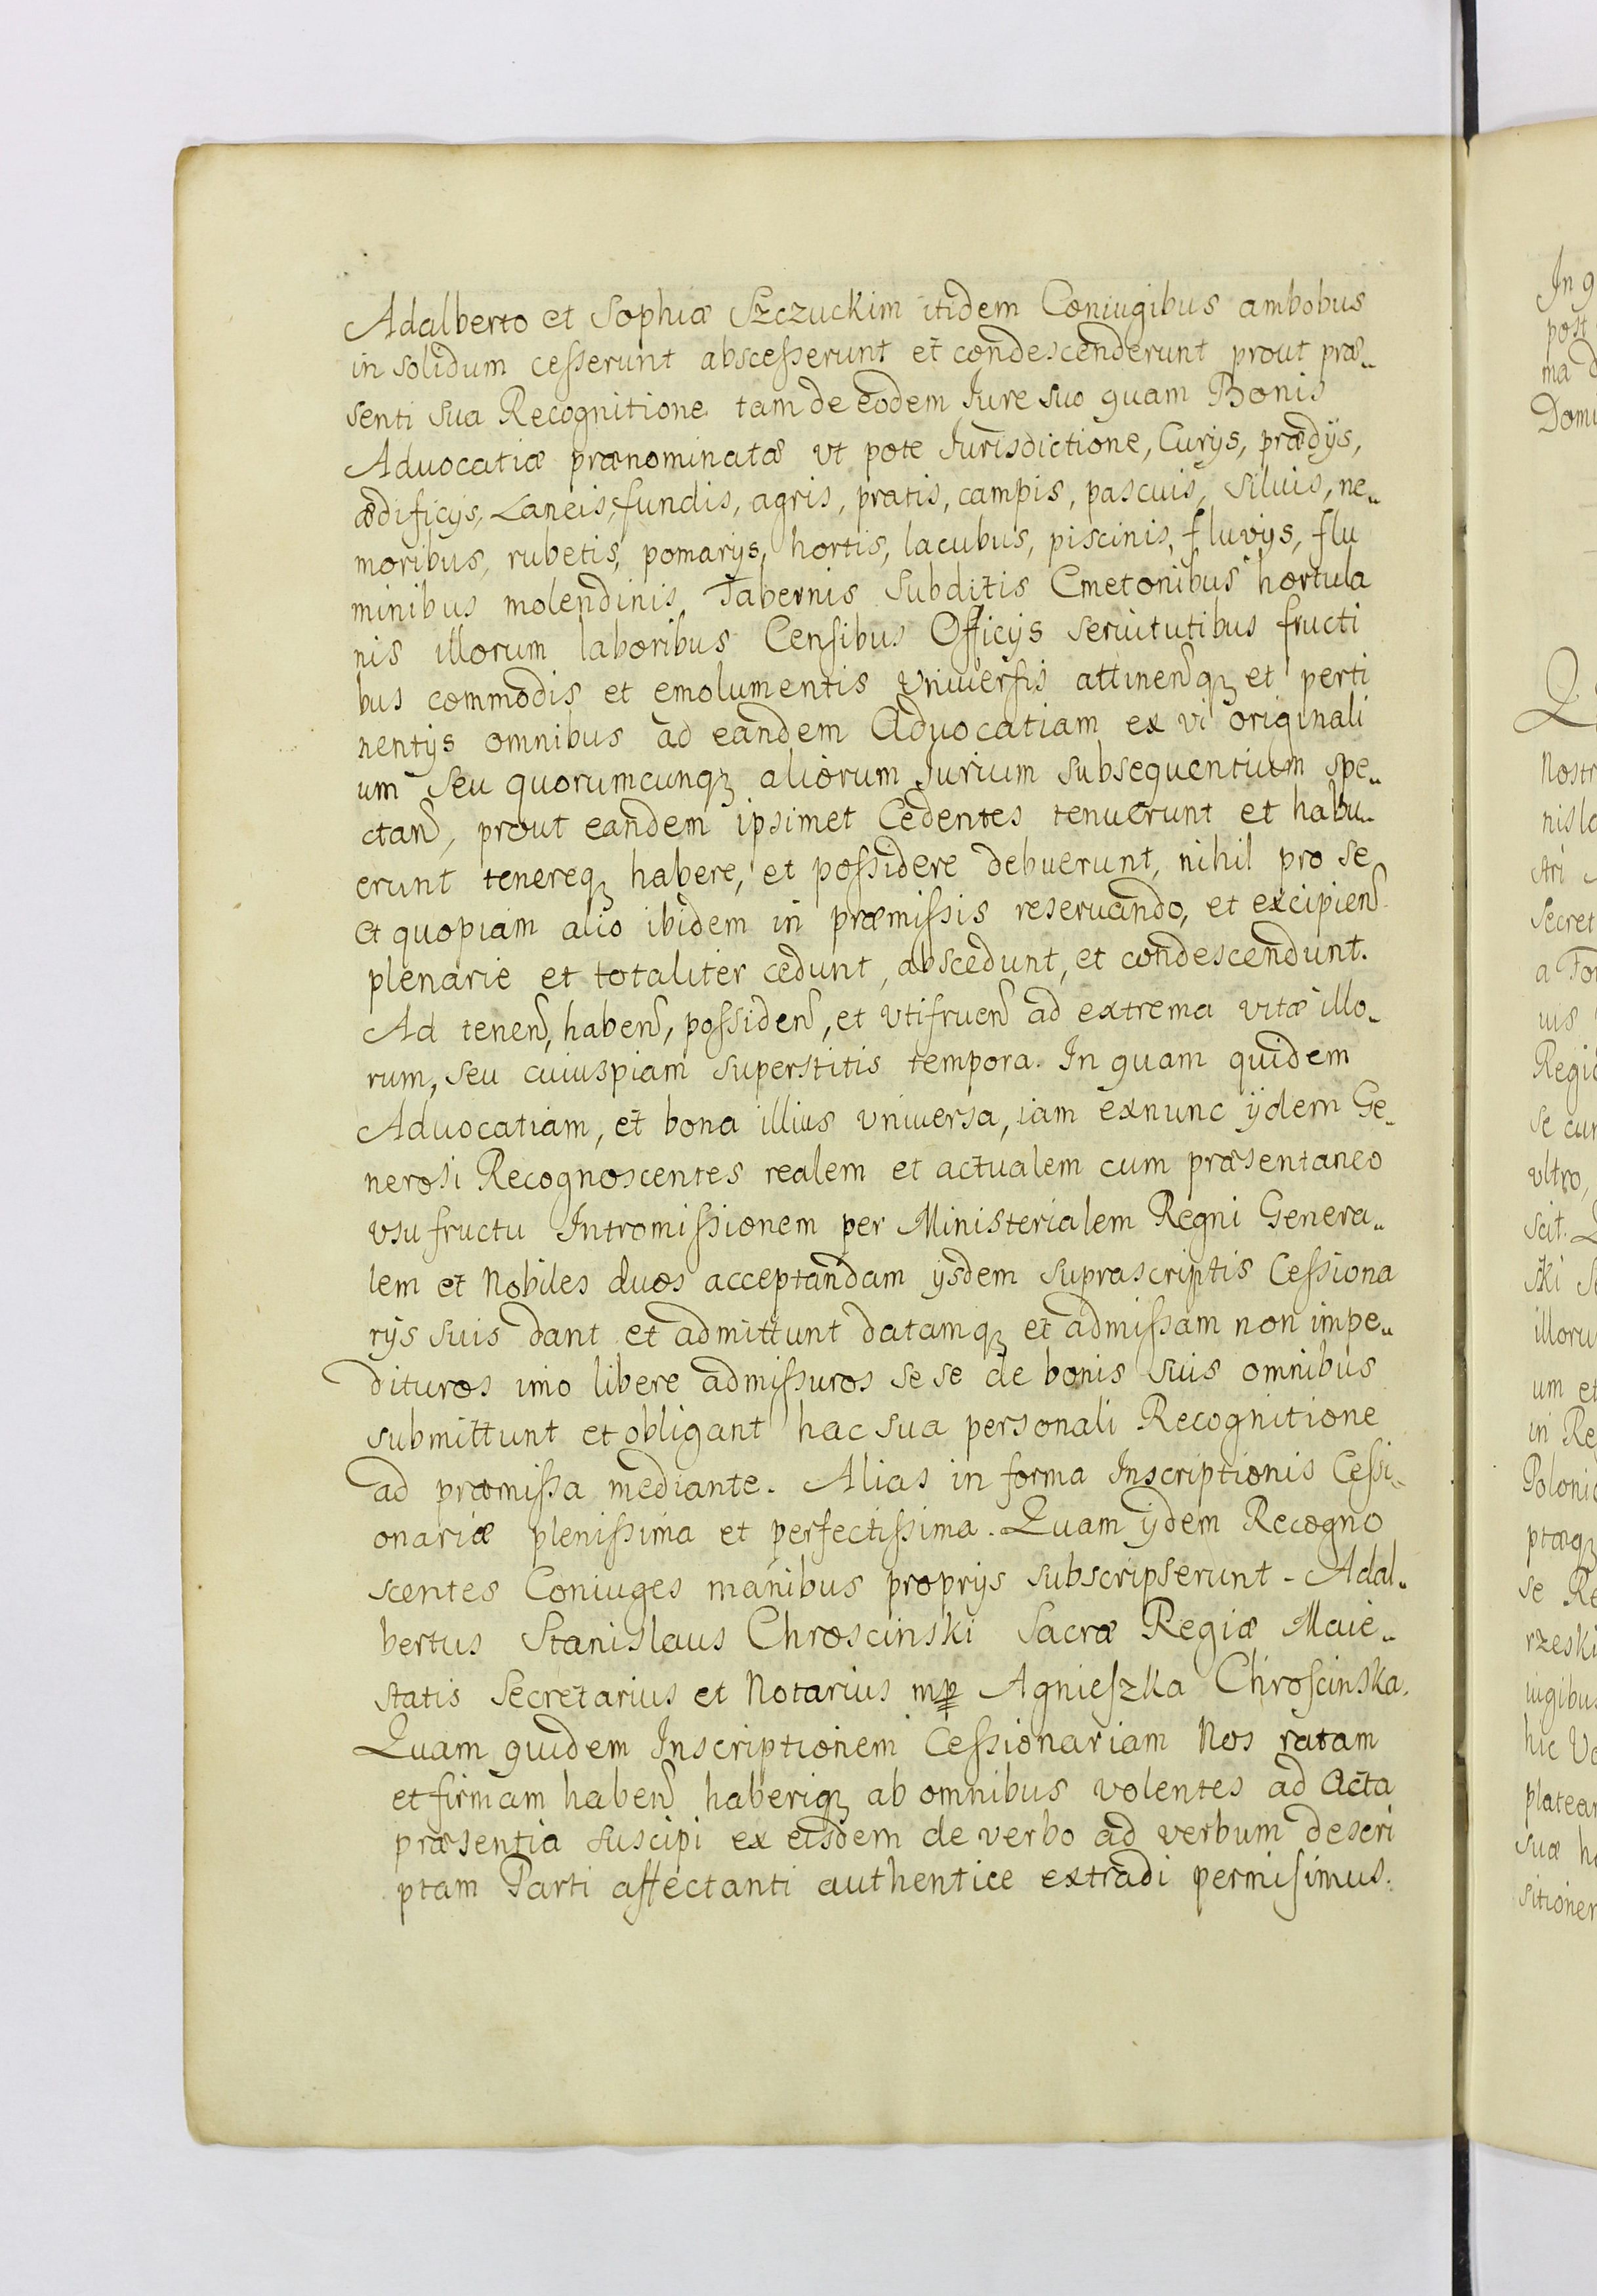 Adalberto et Sophiæ Szczuckim itidem Coniugibus ambobus
in solidum cesserunt abscesserunt et condescenderunt prout præ„
senti sua Recognitione tam de eodem Iure suo quam Bonis
Aduocatiæ prænominatæ vt pote Iurisdictione, Curÿs, prædÿs,
ædificÿs, Laneis, fundis, agris, pratis, campis, pascuis, siluis, ne„
moribus, rubetis, pomarÿs, hortis, lacubus, piscinis, fluvÿs, flu
minibus molendinis, Tabernis subditis Cmetonibus hortula
nis illorum laboribus Censibus Officÿs seruitutibus fructi
bus commodis et emolumentis vniuersis attinenqz et perti
nentÿs omnibus ad eandem Aduocatiam ex vi originali
um seu quorumcunqz aliorum Iurium subsequentium spe„
ctan, prout eandem ipsimet Cedentes tenuerunt et habu„
erunt tenereqz habere, et possidere debuerunt, nihil pro se
et quopiam alio ibidem in præmissis reseruando, et excipien
plenarie et totaliter cedunt, abscedunt, et condescendunt.
Ad tenen, haben, possiden, et vtifruen ad extrema vitæ illo„
rum, seu cuiuspiam superstitis tempora. In quam quidem
Aduocatiam, et bona illius vniuersa, iam exnunc ÿdem Ge„
nerosi Recognoscentes realem et actualem cum præsentaneo
vsufructu Intromissionem per Ministerialem Regni Genera„
lem et Nobiles duos acceptandam ÿsdem suprascriptis Cessiona
rÿs suis dant et admittunt datamqz et admissam non impe„
dituros imo libere admissuros se se de bonis suis omnibus
submittunt et obligant hac sua personali Recognitione
ad præmissa mediante. Alias in forma Inscriptionis Cessi„
onariæ plenissima et perfectissima. Quam ÿdem Recogno
scentes Coniuges manibus proprÿs subscripserunt - Adal„
bertus Stanislaus Chroscinski Sacræ Regiæ Maie„
statis Secretarius et Notarius mp Agnieszka Chroscinska.
Quam quidem Inscriptionem Cessionariam Nos ratam
et firmam haben haberiqz ab omnibus volentes ad Acta
præsentia suscipi ex eisdem de verbo ad verbum descri
ptam Parti affectanti authentice extradi permisimus.
In
post
ma
Nostr
Secret
a
uis
se
vltro,
scit.
um et
in
se
hic
suæ